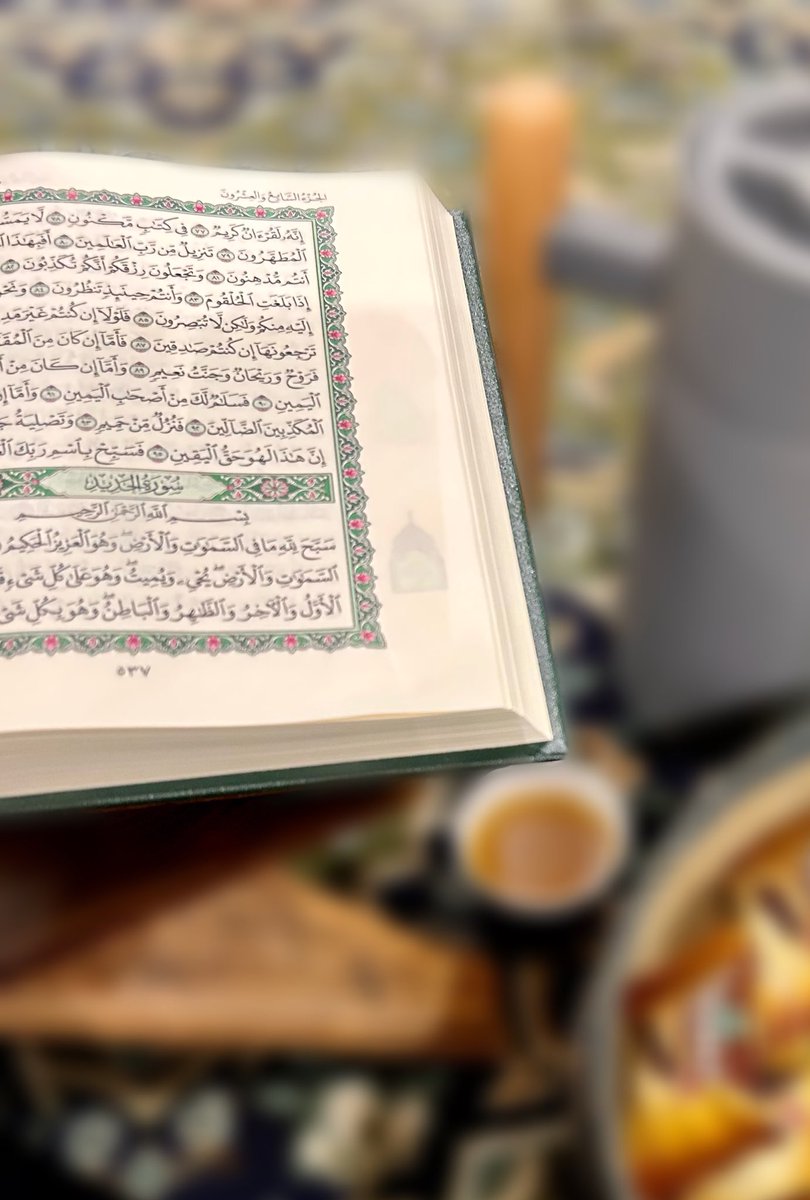 الجزء السابع والعشرون
إِنَّهُۥ لَقُرْءَانٌ كَرِيمٌ ٧٧ فِي كِتَٰبٍ مَّكْنُونٍ ٧٨ لَّا يَمَسُّ
ٱلْمُطَهَّرُونَ ٧٩ تَنزِيلٌ مِّن رَّبِّ ٱلْعَٰلَمِينَ ٨٠ أَفَبِهَٰذَا
أَنتُم مُّدْهِنُونَ ٨١ وَتَجْعَلُونَ رِزْقَكُمْ أَنَّكُمْ تُكَذِّبُونَ ٨٢
إِذَا بَلَغَتِ ٱلْحُلْقُومَ ٨٣ وَأَنتُمْ حِينَئِذٍ تَنظُرُونَ ٨٤ وَنَحْ
إِلَيْهِ مِنكُمْ وَلَٰكِن لَّا تُبْصِرُونَ ٨٥ فَلَوْلَآ إِن كُنتُمْ غَيْرَ مَدِ
تَرْجِعُونَهَآ إِن كُنتُمْ صَٰدِقِينَ ٨٧ فَأَمَّآ إِن كَانَ مِنَ ٱلْمُقَ
فَرَوْحٌ وَرَيْحَانٌ وَجَنَّتُ نَعِيمٍ ٨٩ وَأَمَّآ إِن كَانَ مِنْ
ٱلْيَمِينِ ٩٠ فَسَلَٰمٌ لَّكَ مِنْ أَصْحَٰبِ ٱلْيَمِينِ ٩١ وَأَمَّآ إِ
ٱلْمُكَذِّبِينَ ٱلضَّآلِّينَ ٩٢ فَنُزُلٌ مِّنْ حَمِيمٍ ٩٣ وَتَصْلِيَةُ جَ
إِنَّ هَٰذَا لَهُوَ حَقُّ ٱلْيَقِينِ ٩٥ فَسَبِّحْ بِٱسْمِ رَبِّكَ
سُورَةُ الحَدِيدِ
بِسْمِ ٱللَّهِ ٱلرَّحْمَٰنِ ٱلرَّحِيمِ
سَبَّحَ لِلَّهِ مَا فِي ٱلسَّمَٰوَٰتِ وَٱلْأَرْضِ وَهُوَ ٱلْعَزِيزُ ٱلْحَكِيمُ
ٱلسَّمَٰوَٰتِ وَٱلْأَرْضِ يُحْيِۦ وَيُمِيتُ وَهُوَ عَلَىٰ كُلِّ شَيْءٍ
ٱلْأَوَّلُ وَٱلْءَاخِرُ وَٱلظَّٰهِرُ وَٱلْبَاطِنُ وَهُوَ بِكُلِّ شَيْ
٥٣٧